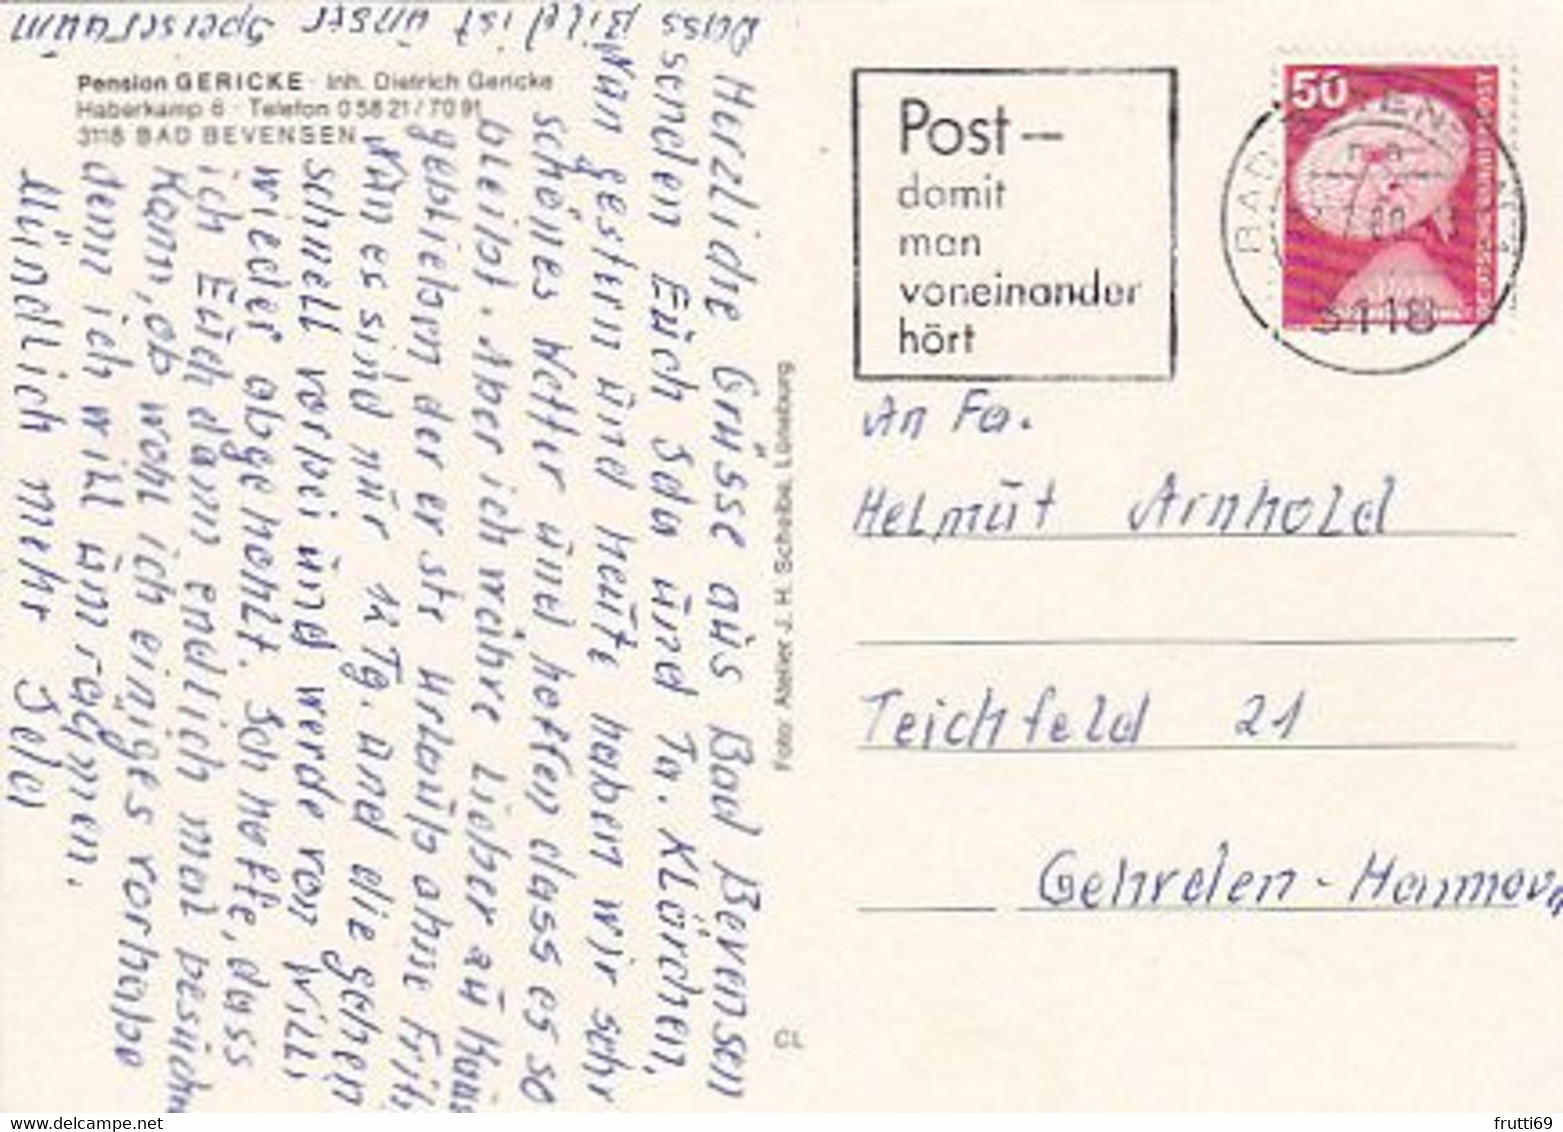 Dass Bild ist unser Speiseraum
Pension GERICKE · Inh. Dietrich Gericke
Haberkamp 6 · Telefon 0 58 21 / 70 91
3118 BAD BEVENSEN
Herzliche Grüsse aus Bad Bevensen
senden Euch Ida und Ta. Klärchen,
Nun gestern und heute haben wir sehr
schönes Wetter und hoffen dass es so
bleibt. Aber ich währe lieber zu Haus
geblieben, der erste Urlaub ohne Fritz
Nun es sind nur 12 Tg. und die gehen
schnell vorbei und werde von Willi
wieder abgehohlt. Ich hoffe, dass
ich Euch dann endlich mal besuchen
kann, ob wohl ich einiges vorhabe
denn ich will umräumen.
Mündlich mehr Ida
Foto: Atelier J. H. Scheibe, Lüneburg
CL
Post –
damit
man
voneinander
hört
50
DEUTSCHE BUNDESPOST
BAD BEVENSEN
80
3118
An Fa.
Helmut Arnhold
Teichfeld 21
Gehrden - Hannover
frutti69